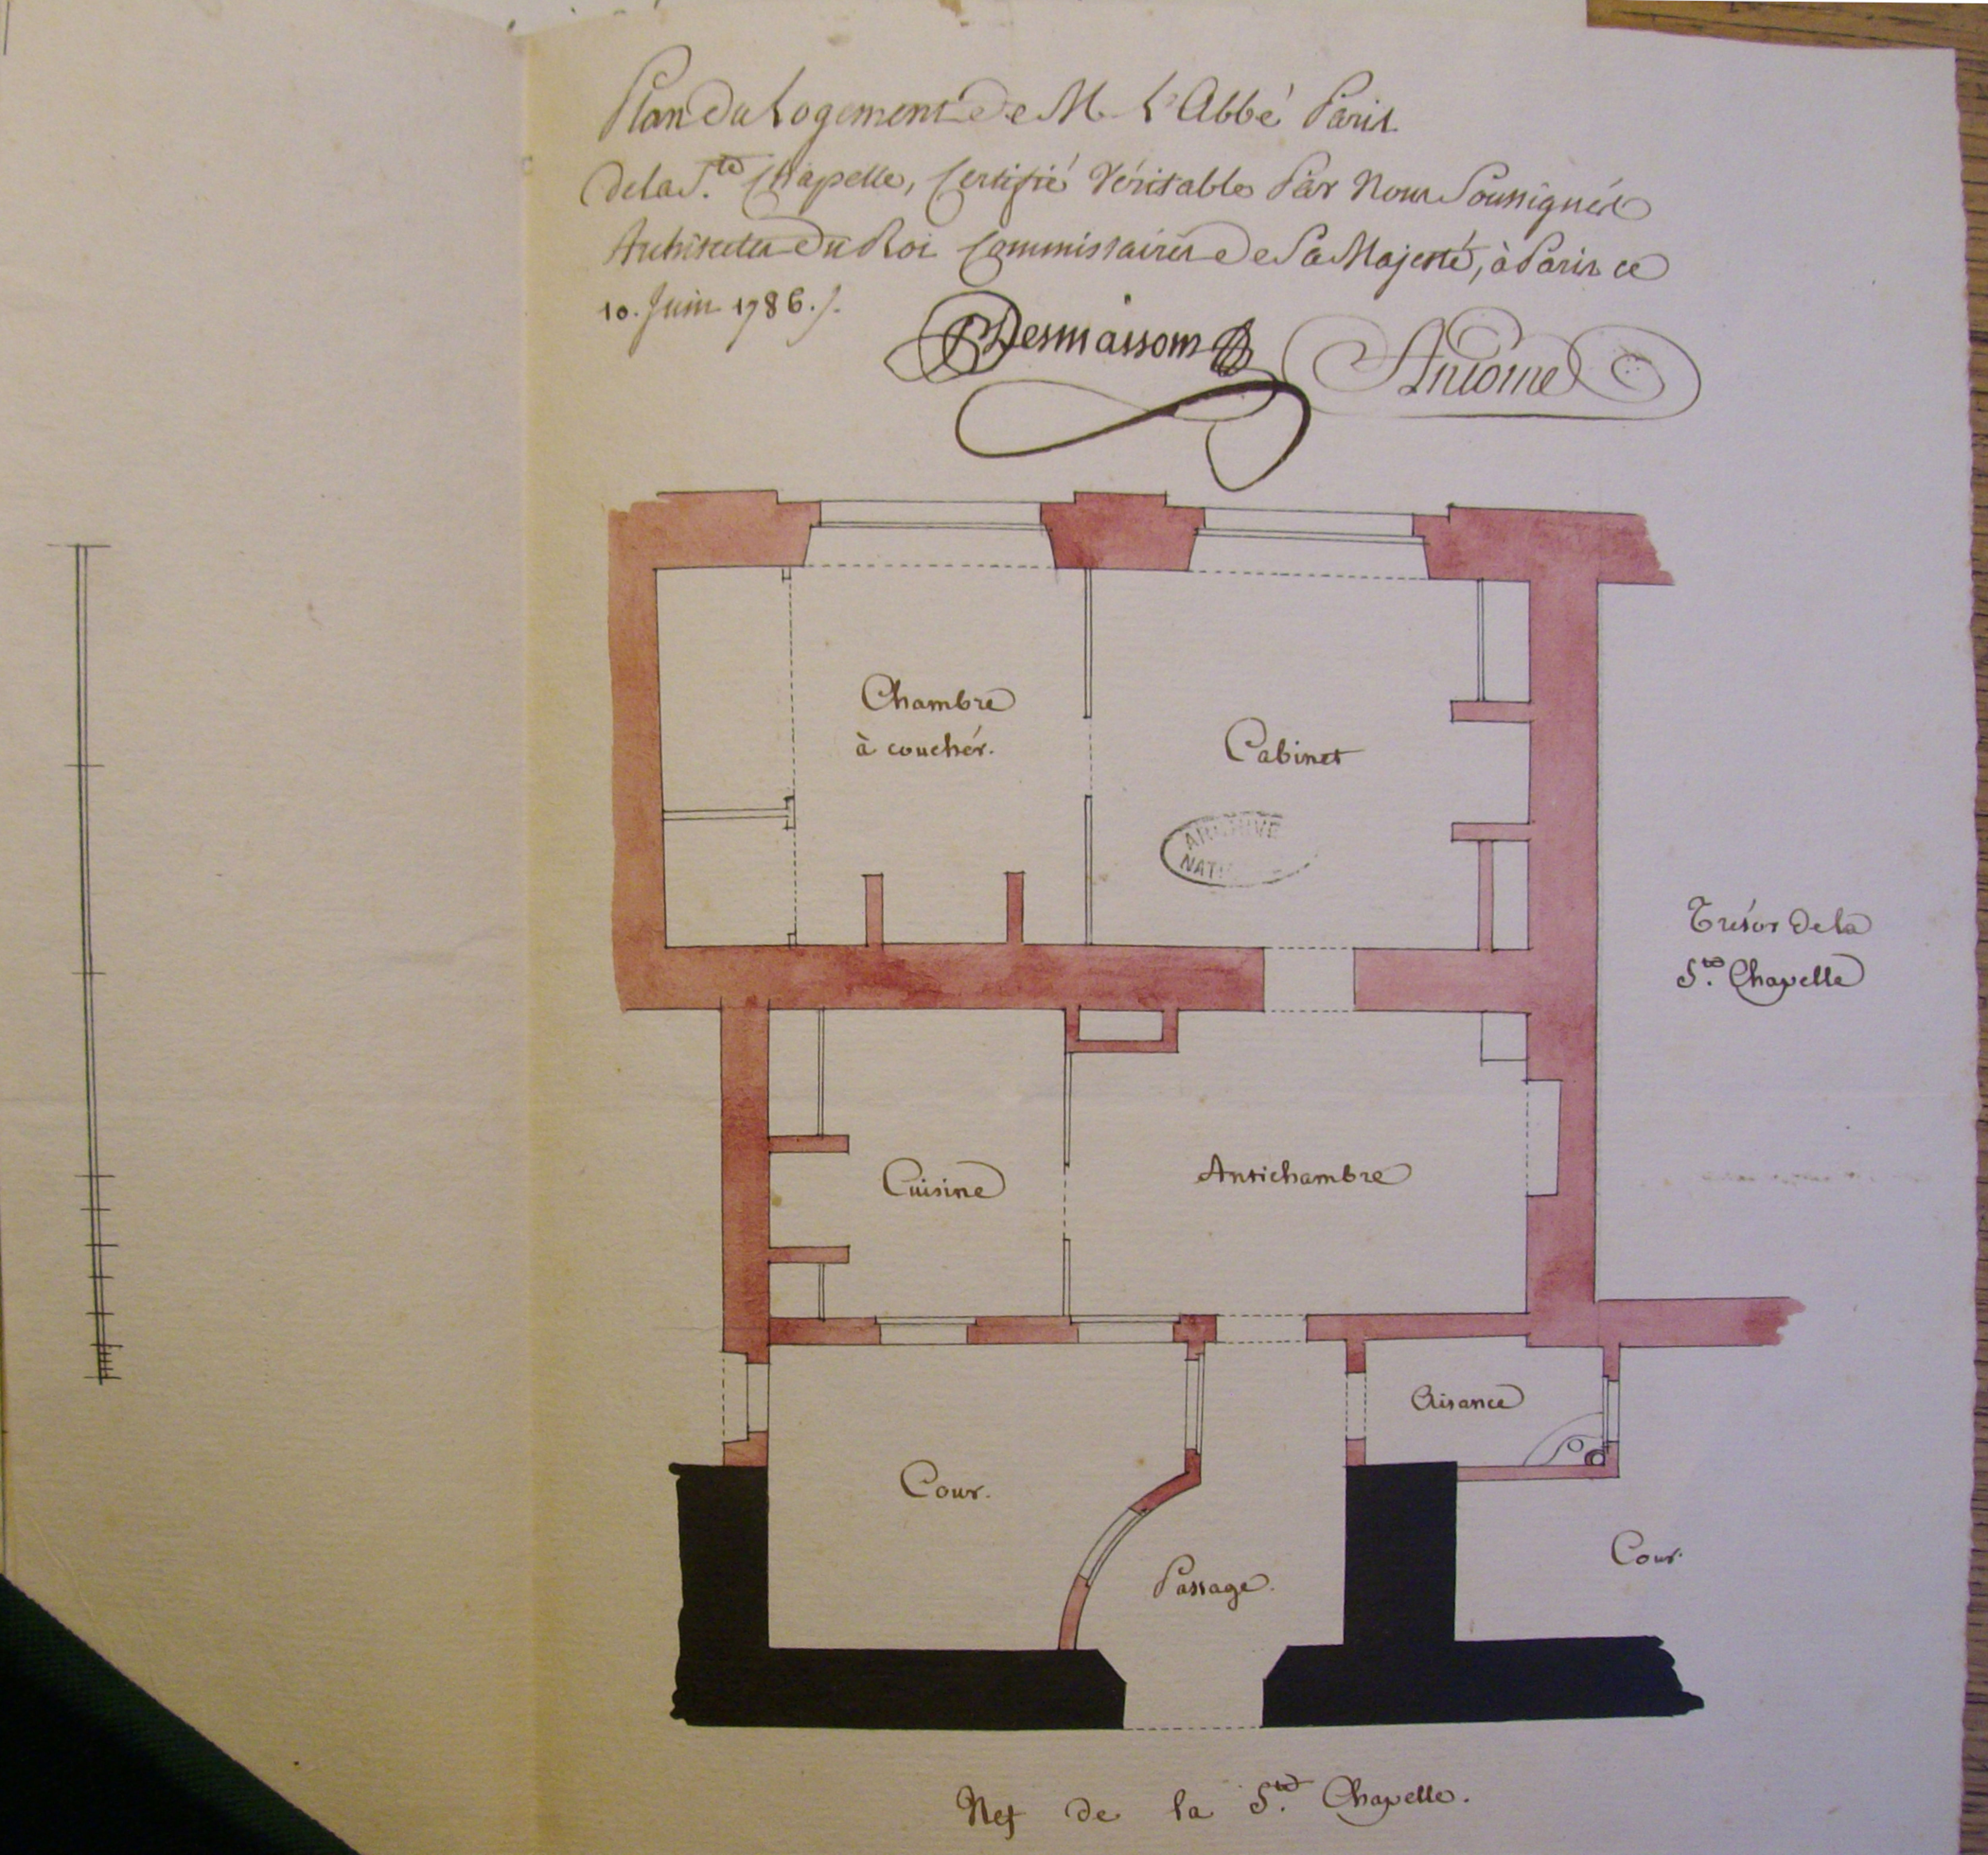 Plan du Logement de M. L'Abbé Paris
de la S.te Chapelle, Certifié Véritable Par Nous Soussignés
Architectes du Roi Commissaires de Sa Majesté, à Paris ce
10. Juin 1786./.
Desmaisons
Antoine
Chambre
à couchér.
Cabinet
ARCHIVE
NATI
Trésor de la
S.te Chapelle
Cuisine
Antichambre
Aisance
Cour.
Cour.
Passage.
Nef de la S.te Chapelle.